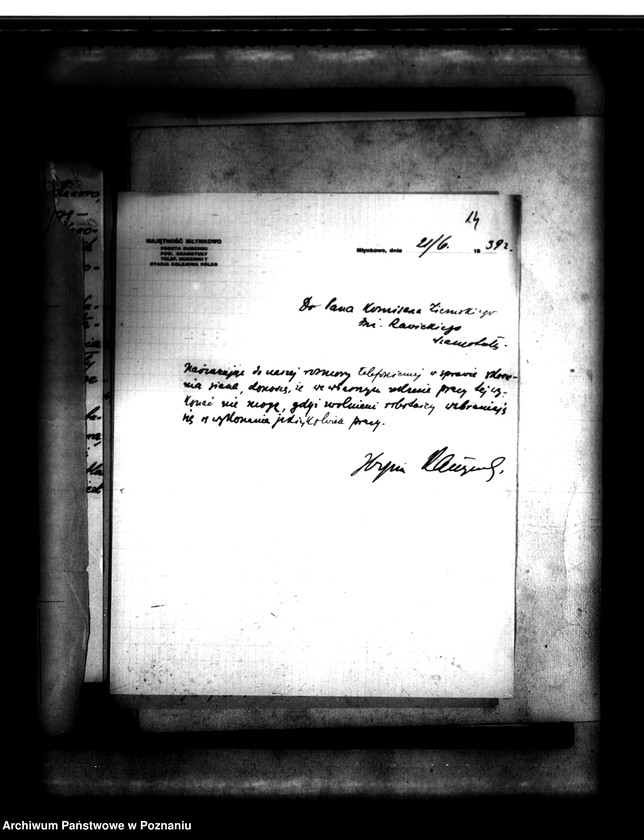 14
MAJĘTNOŚĆ MŁYNKOWO
POCZTA DUSZNIKI
POW. SZAMOTUŁY
TELEF. DUSZNIKI 7
STACJA KOLEJOWA PÓLKO
Młynkowo, dnia 21/6. 1939 r.
Do Pana Komisarza Ziemskiego
Inż. Rawickiego
Szamotuły.
Nawiązując do naszej rozmowy telefonicznej w sprawie zbiera-
nia siana, donoszę, że we własnym zakresie pracy tej wy-
konać nie mogę, gdyż wolnieni robotnicy wzbraniają
się wykonania jakiejkolwiek pracy.